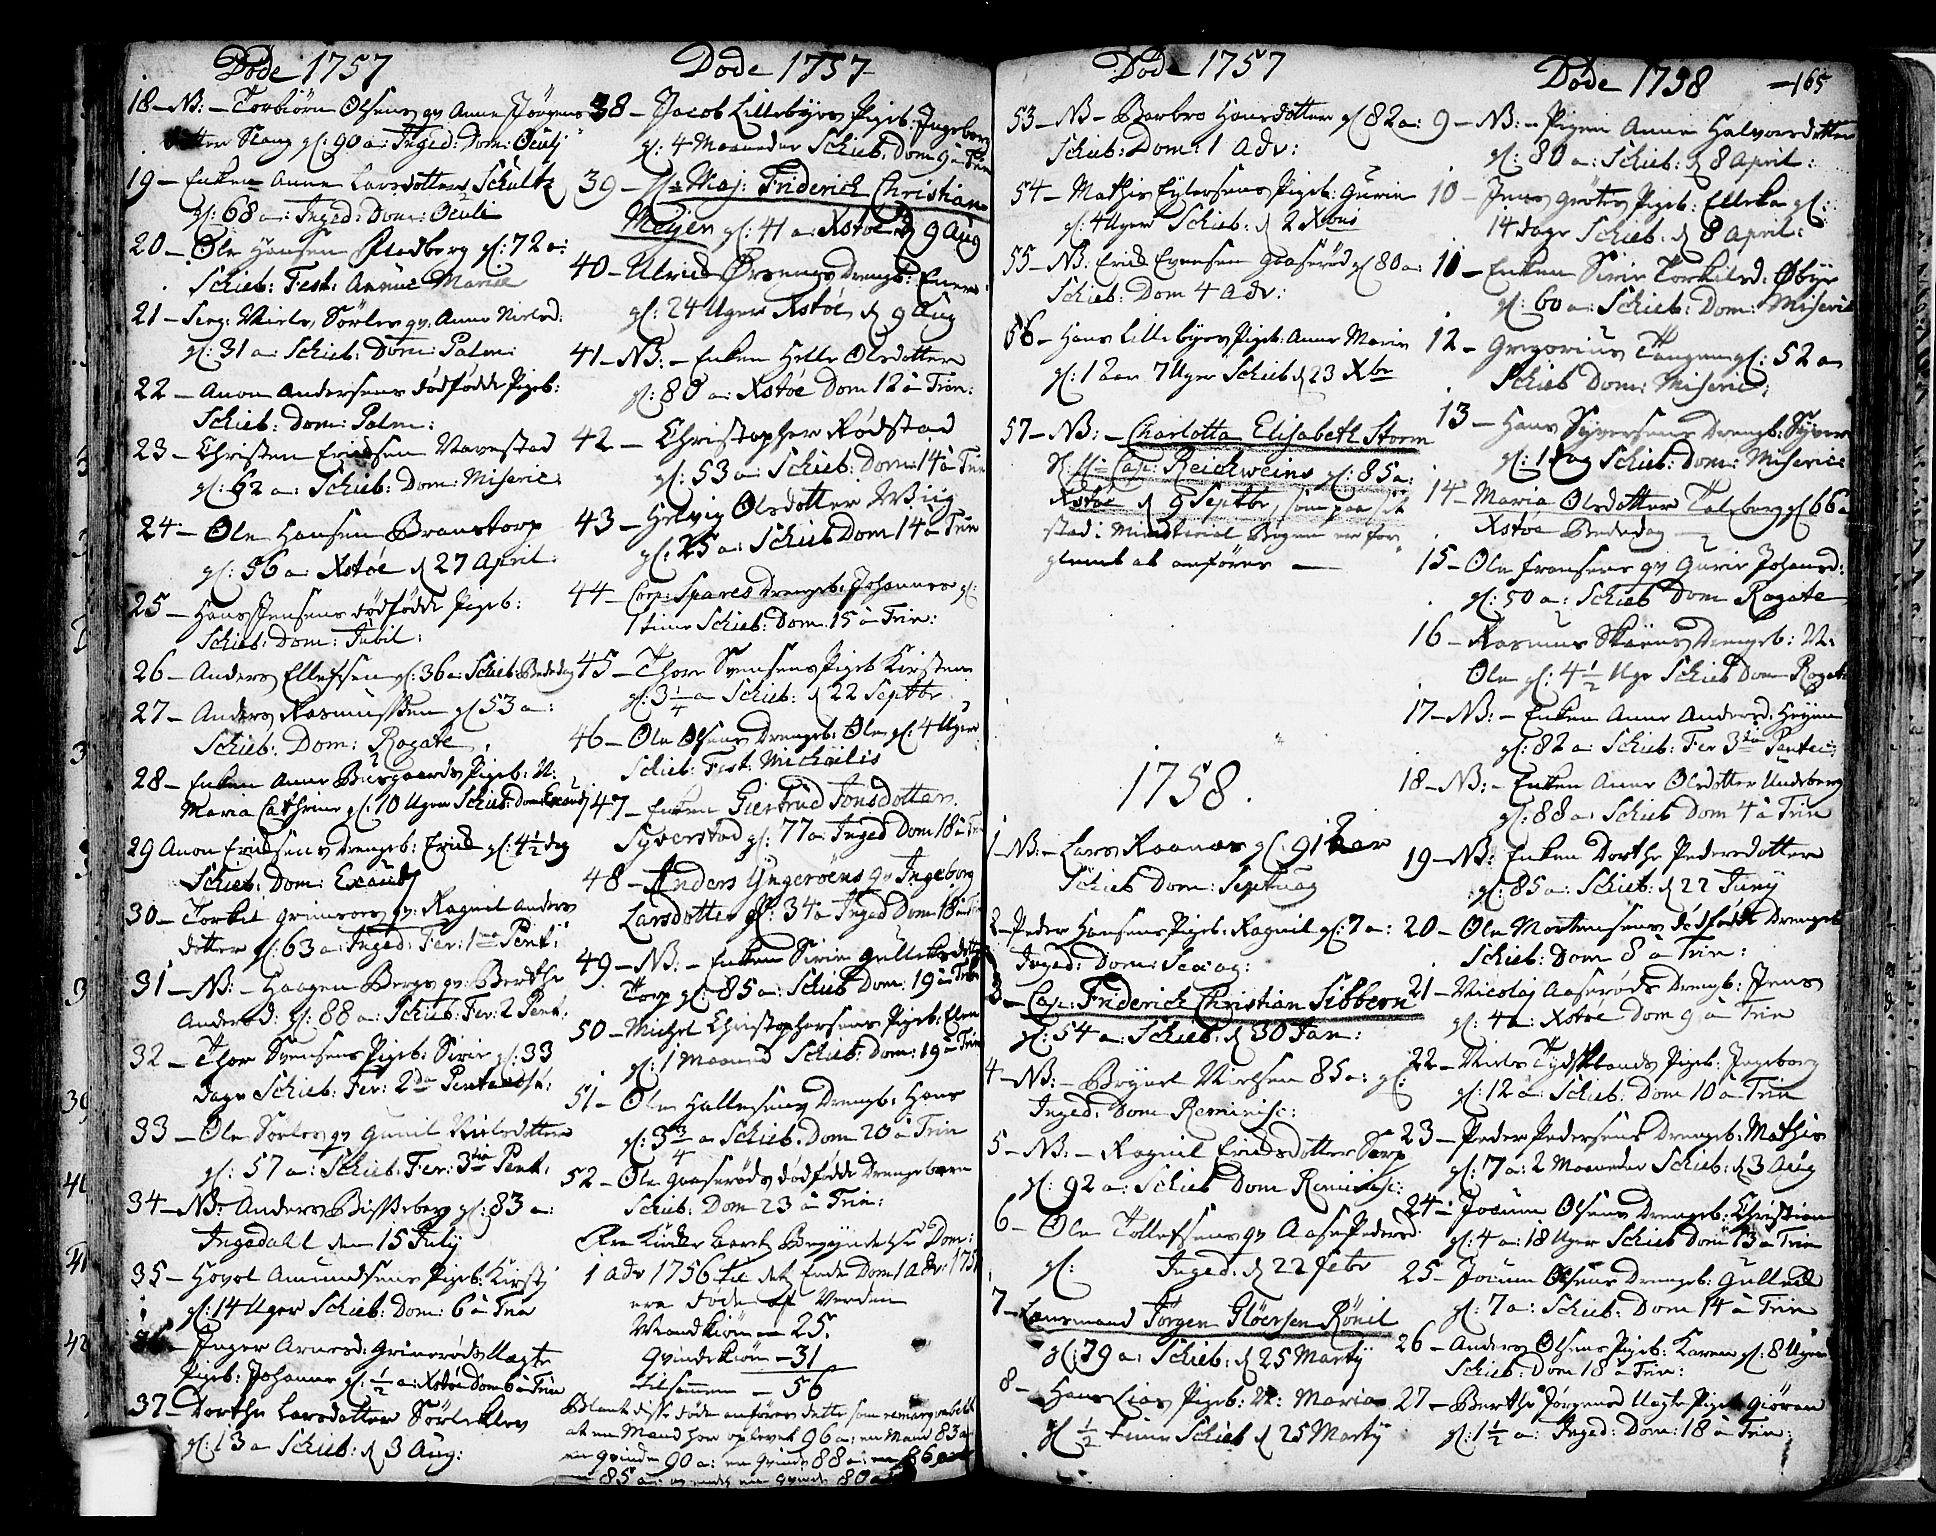 Døde 1757
18 - NB: - Torbiørn Olsens qv Anne Jørgens
dotter Slang gl: 90 a: Inged: Dom: Oculj
19 - Enken Anne Larsdotter Schultz
gl: 68 a: Inged: Dom: Oculi
20 - Ole Hansen Rudberg gl: 72 a:
Schieb: Fest: Annunc Mariæ
21 - Serg: Niels Sørles qv: Anne Nielsd:
gl: 31 a: Schieb: Dom: Palm:
22 - Anon Andersens dødfødde Pigeb:
Schieb: Dom: Palm:
23 - Christen Erichsen Navestad
gl: 62 a: Schieb: Dom: Miseric:
24 - Ole Hansen Branstorp
gl: 56 a: Xstoe d 27 April:
25 - Hans Jensens dødfødde Pigeb:
Schieb: Dom: Jubil:
26 - Anders Ellefsen gl: 36 a: Schieb: Bededag
27 - Anders Rasmussen gl 53 a:
Schieb: Dom: Rogate
28 - Enken Anne Biergaards Pigeb: N:
Maria Cathrine gl: 10 Uger Schieb: Dom Exaudj
29 Anon Erichsens Drengeb: Erich gl: 4 1/2 dag
Schieb: Dom: Exaudj
30 - Torkil Grimsøes qv: Ragnil Anders
dotter gl: 63 a: Inged: Fer: 1ma Pent:
31 - NB: - Haagen Bergs qv: Berthe
Andersd: gl: 88 a: Schieb: Fer: 2 Pent:
32 - Thore Svensens Pigeb: Sirie gl: 33
Dage Schieb: Fer: 2da Pentecost:
33 - Ole Sørles qv Gunil Nielsdotter
gl: 57 a: Schieb: Fer: 3tia Pent:
34 - NB: Anders Bisseberg gl: 83 a:
Ingedahl den 15 July
35 - Hovel Amundsens Pigeb: Kirstj
gl: 14 Uger Schieb: Dom: 6 a Trin
36 - Inger Arnesd: Grimerøds Uægte
Pigeb: Johanne gl: 1/2 a: Xstoe Dom 6 a Trin
37 - Dorthe Larsdotter Sørlie
gl: 13 a Schieb: d 3 Aug:
Døde 1757
38 - Jacob Lillebyes Pigeb: Ingeborg
gl: 4 Maaneder Schieb: Dom 9 a Trin
39 - Hr Maj: Friderich Christian
Meyen gl: 41 a: Xstoe d 9 Aug
40 - Ulrich Ørsengs Drengeb: Enevo
gl: 24 Uger Xstoe d 9 Aug
41 - NB: - Enken Helle Olsdotter
gl: 80 a: Xstoe Dom 12 a Trin:
42 - Christopher Rødstad
gl: 53 a: Schieb: Dom: 14 a Trin
43 - Helvig Olsdotter Wiig
gl: 25 a: Schieb Dom 14 a Trin
44 - Corp: Spares Drengeb: Johannes gl:
1 time Schieb: Dom: 15 a Trin:
45 - Thore Svensens Pigeb Kirsten
gl: 3 1/4 a Schieb: d 22 Septbr
46 - Ole Olsens Drengeb: Ole gl: 4 Uger
Schieb: Fest: Michaelis
47 - Enken Giertrud Jonsdotter
Syverstad gl: 77 a: Inged Dom 18 a Trin
48 - Anders Yngerøens qv Ingeborg
Larsdotter gl: 34 a Inged Dom 18 a Trin
49 - NB: - Enken Sirie Gullichsdotter
Torp gl: 85 a: Schieb Dom: 19 a Trin
50 - Michel Christophersens Pigeb: Elen
gl: 1 Maaned Schieb: Dom: 19 a Trin
51 - Ole Hallesens Drengeb: Hans
gl: 3 3/4 a Schieb: Dom 20 a Trin
52 - Ole Gaaserøds dødfødde Drengebarn
Schieb: Dom 23 a Trin:
Fra Kirke Aarets Begyndelse Dom:
1 Adv 1756 til dets Ende Dom 1 Adv: 1757
ere døde af Verden
Mandkiøn - 25.
Qvindekiøn - 31
tilsammen - 56
Blant disse døde anføres dette som remarqvabelt
at en Mand har oplevet 96 a: en Mand 83 a
en qvinde 90 a: en qvinde 88 a: en 86
85 a: og endelig en qvinde 80 a
Døde 1757
53 - NB - Barbro Hansdotter gl 82 a:
Schieb: Dom: 1 Adv:
54 - Mathis Eylersens Pigeb: Gurie
gl: 4 Uger Schieb: d 2 Xbris
55 - NB: Erich Evensen Gaaserød gl 80 a:
Schieb: Dom 4 Adv:
56 - Hans Lillebyes Pigeb: Anne Marie
gl: 1 aar 7 Uger Schieb d 23 Xbr
57 - NB: - Charlotta Elisabeth Storm
Sl. Hr Cap: Reichweins gl: 85 a:
Xstoe d 9 Septbr, som paa sit
stad i Ministerial Bogen er for-
glemt at anføres -
1758.
1 - NB: - Lars Raanaas gl: 91 aar
Schieb Dom: Septuag
2 - Peder Hansens Pigeb: Ragnil gl: 7 a:
Inged: Dom: Sexag:
3 - Cap: Friderich Christian Sibbern
gl: 54 a: Schieb: d 30 Jan:
4 - NB: - Brynil Nielsen 85 a: gl:
Inged: Dom Reminisc:
5 - NB: - Ragnil Erichsdotter Sarp
gl: 92 a: Schieb Dom Reminisc:
6 - Ole Tollefsens qv Aase Pedersd:
gl: Inged: d 22 Febr
7 - Lænsmand Jørgen Gløersen Rønil
gl: 79 a: Schieb: d 25 Martij
8 - Hans Lies Pigeb: N: Maria
gl 1/2 time Schieb d 25 Martij
Døde 1758 - 165
9 - NB: - Pigen Anne Halvorsdotter
gl: 80 a: Schieb: d 8 April:
10 - Jens Grøtes Pigeb: Elleka gl:
14 dage Schieb: d 8 April:
11 - Enken Sirie Torkilsd: Øbye
gl: 60 a: Schieb: Dom: Miseric
12 - Gregorius Tangen gl: 52 a
Schieb Dom: Miseric:
13 - Hans Syversens Drengeb: Syver
gl: 1 dag Schieb: Dom: Miseric:
14 - Maria Olsdotter Taleberg gl 66 a
Xstoe Bededag
15 - Ole Fransens qv Gurie Johansd:
gl: 50 a: Schieb Dom Rogate
16 - Rasmus Skiens Drengeb: N:
Ole gl: 4 1/2 Uge Schieb Dom Rogate
17 - NB: - Enken Anne Andersd: Heyen
gl: 82 a: Schieb: Fer 3tia Pentec:
18 - NB: - Enken Anne Olsdotter Underberg
gl: 88 a: Schieb Dom 4 a Trin
19 - NB: Enken Dorthe Pedersdotter
gl: 85 a: Schieb: d 22 Juny
20 - Ole Mortensens dødfødde Drengeb
Schieb: Dom 8 a Trin:
21 - Nicolaj Aaserøds Drengeb: Jens
gl: 4 a: Xstoe Dom 9 a Trin
22 - Niels Tydsklands Pigeb: Ingeborg
gl: 12 a: Schieb: Dom 10 a Trin
23 - Peder Pedersens Drengeb: Mathis
gl: 7 a: 2 Maaneder Schieb: d 3 Aug
24 - Jocum Olsens Drengeb: Christian
gl: 4 a: 18 Uger Schieb Dom 13 a Trin
25 - Jocum Olsens Drengeb: Gullich
gl: 7 a: Schieb: Dom 14 a Trin
26 - Anders Olsens Pigeb: Karen gl: 8 Uger
Schieb: Dom 18 a Trin:
27 - Berthe Jørgensd Uægte Pigeb Giøran
gl: 1 1/2 a: Inged: Dom: 18 a Trin: